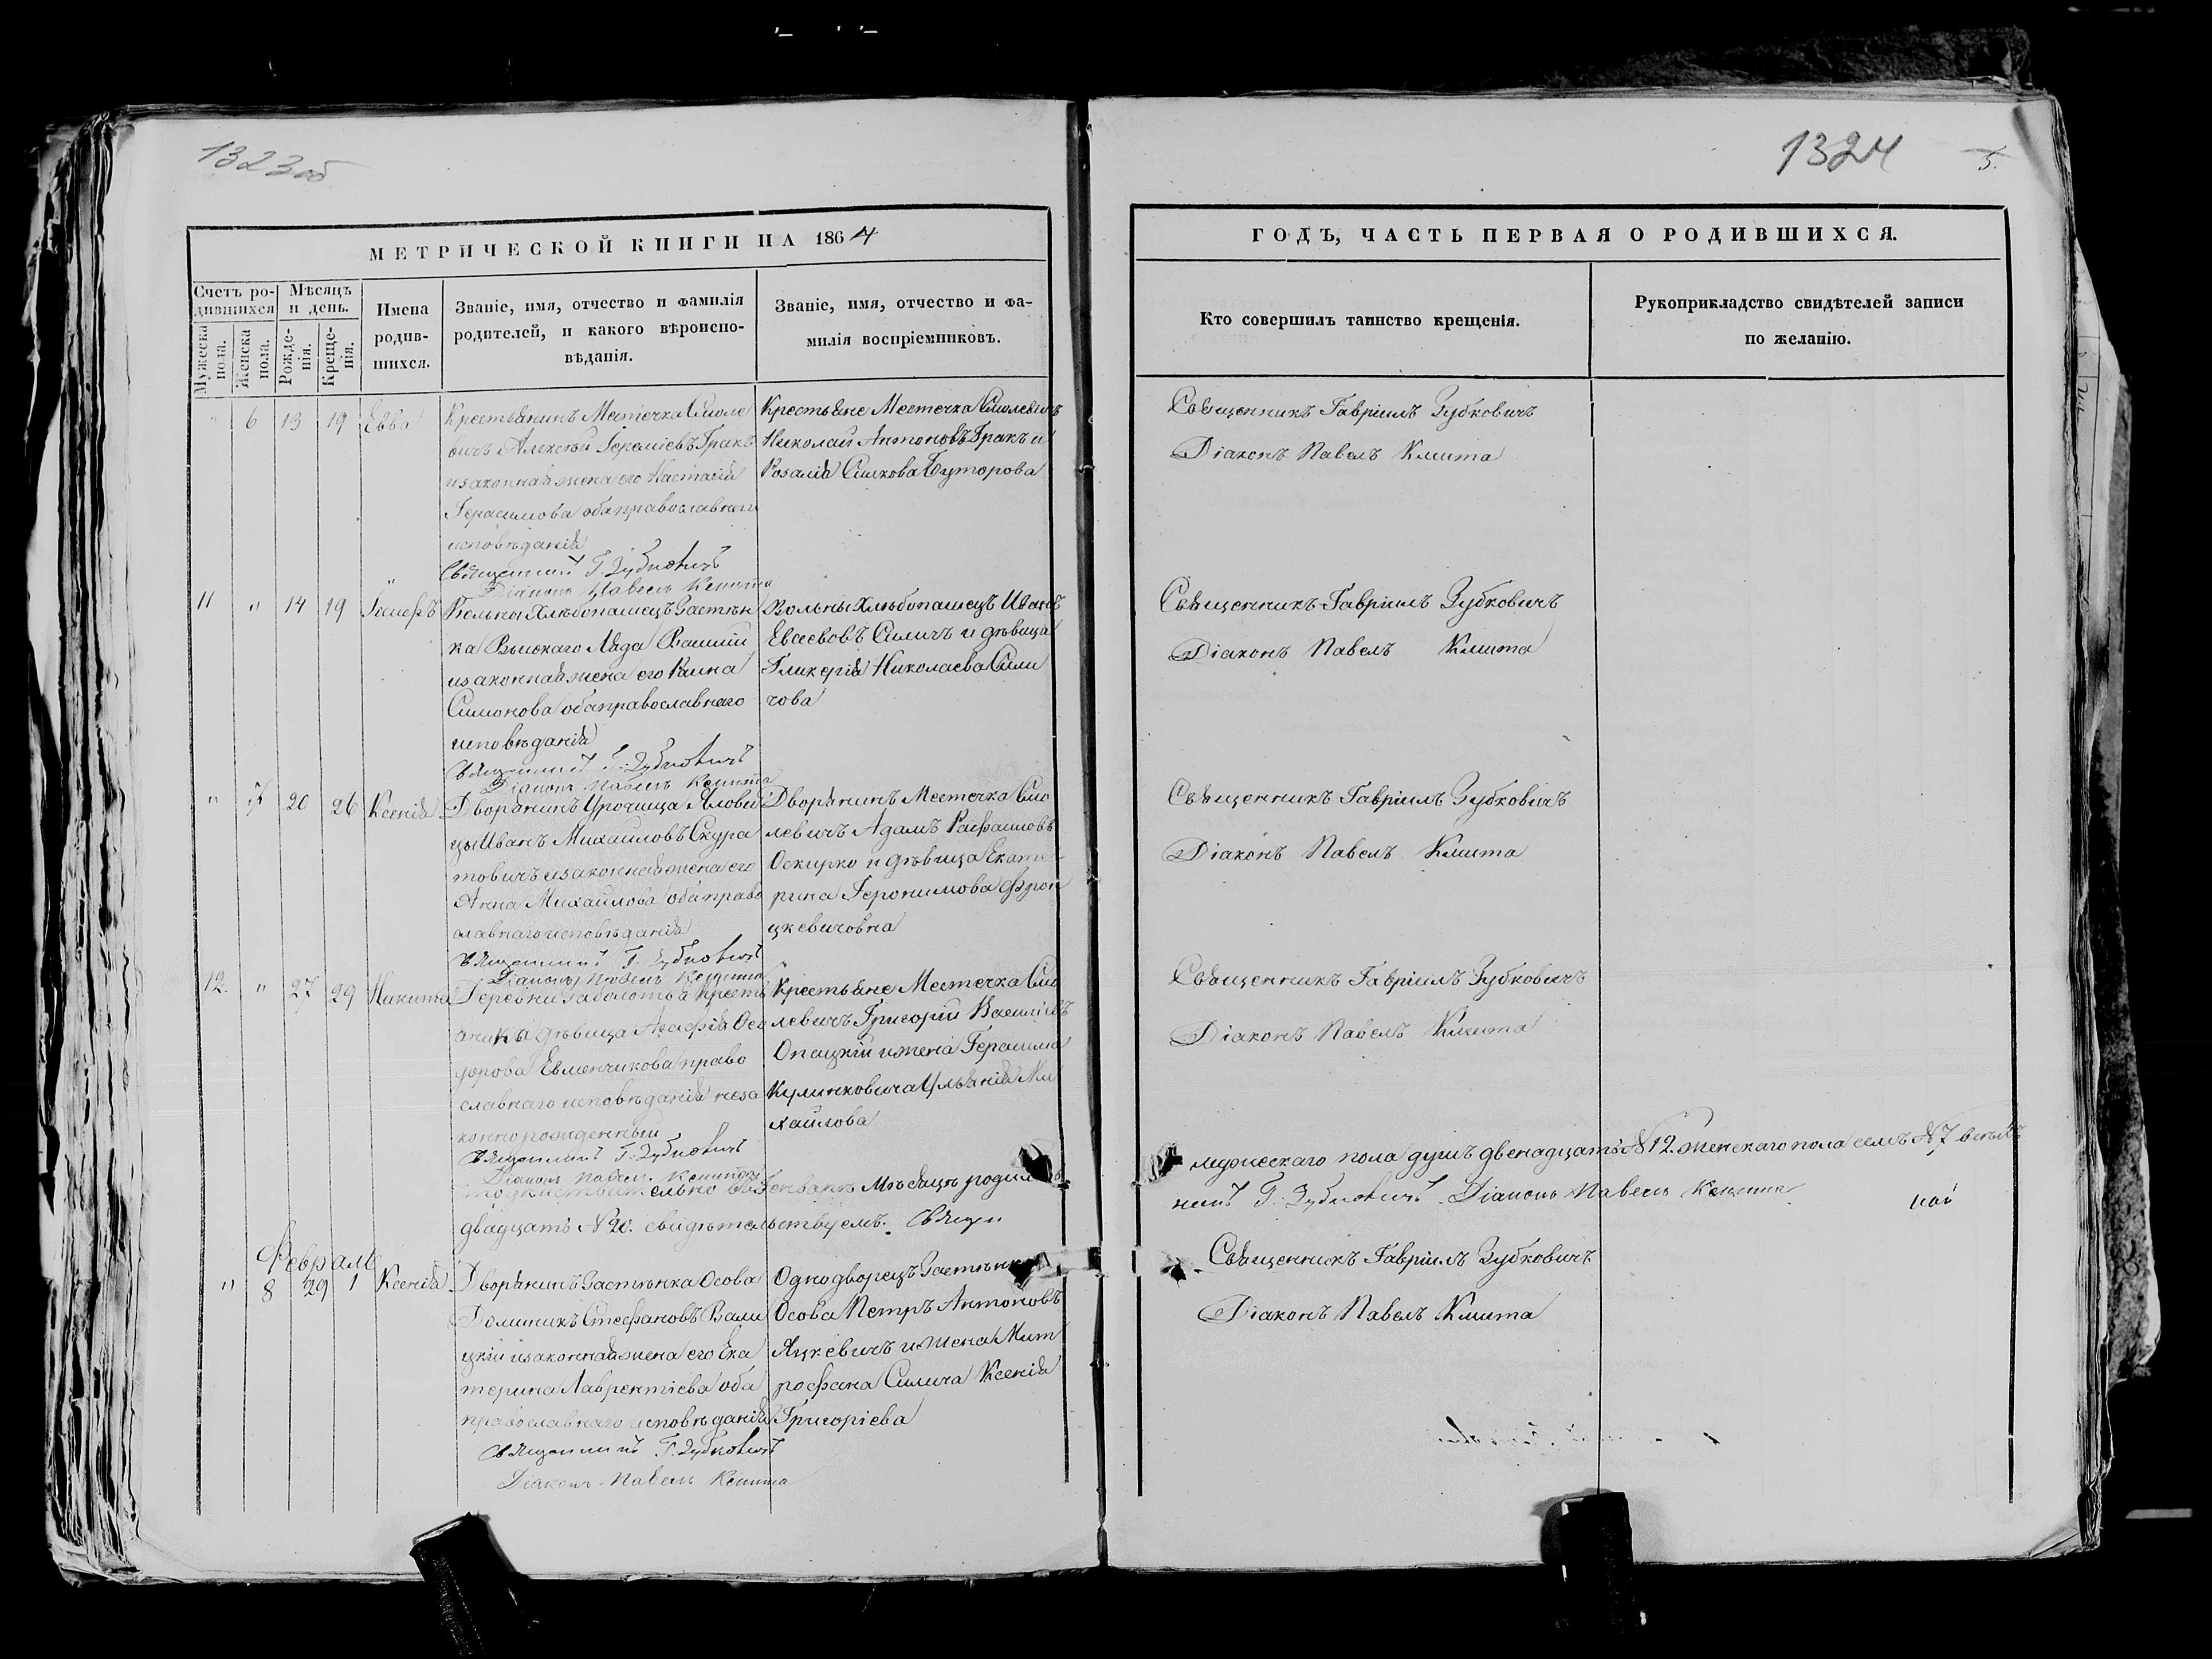 1323об
МЕТРИЧЕСКОЙ КНИГИ НА 1864
Счетъ родившихся
Мѣсяцъ и день.
Мужеска пола.
Женска пола.
Рожденія.
Крещенія.
Имена родившихся.
Званіе, имя, отчество и фамилія
родителей, и какого вѣроиспо-
вѣданія.
Званіе, имя, отчество и фа-
милія воспріемниковъ.
" 6 13 19 Евва
Крестьянинъ Местечка Смоле
вичъ Алексѣй Іереміевъ Гракъ
изаконная жена его Настасія
Герасимова оба православнаго
исповѣданія
Священникъ Г. Зубковичъ
Діаконъ Павелъ Кмита
Крестьяне Местечка Смолевичъ
Николай Антоновъ Гракъ и
Розалія Сцикова Буторова
11 " 14 19 Іосифъ
Вольны Хлѣбопашецъ Застѣн
ка Высокаго Ляда
изаконная жена его
Симонова оба православнаго
исповѣданія
Священникъ Г. Зубковичъ
Діаконъ Павелъ Кмита
Вольны Хлѣбопашецъ Иванъ
Силичъ и дѣвица
Гликерія Николаева Сили
чова
" 7 20 26 Ксенія
Дворянинъ Урочища Яловы
цы Иванъ Михаиловъ Скура
товичъ изаконная жена его
Анна Михаилова оба право
славнаго исповѣданія
Священникъ Г. Зубковичъ
Діаконъ Павелъ Кмита
Дворянинъ Местечка Смо
левичъ Адамъ Рафаиловъ
Оскирко и дѣвица Екате
рина Іеронимова Фрон
цкевичовна
12. " 27 29 Никита
Деревни Заболотья Кресть
янка дѣвица Агафія
дорова Евменчикова право
славнаго исповѣданія незо
конно рожденный
Священникъ Г. Зубковичъ
Діаконъ Павелъ Кмита
Крестьяне Местечка Смо
левичъ Григорій Василіевъ
Опацкій и жена Герасима
Кулинковича Ульянія Ми
хайлова
Генварѣ Мѣсяцѣ
двадцать №20. свидѣтельствуемъ. Священ
Февраль
" 8 29 1 Ксенія
Дворянинъ Застѣнка Осова
Доминикъ Стефановъ Вали
цкій изаконная жена его Ека
терина Лаврентіева оба
православнаго исповѣданія
Священникъ Г. Зубковичъ
Діаконъ Павелъ Кмита
Однодворецъ Застѣнка
Осова Петръ Антоновъ
Яцкевичъ и жена Мит
рофана Силича Ксенія
Григоріева
1324 5.
ГОДЪ, ЧАСТЬ ПЕРВАЯ О РОДИВШИХСЯ.
Кто совершилъ таинство крещенія.
Рукоприкладство свидѣтелей записи
по желанію.
Священникъ Гавріилъ Зубковичъ
Діаконъ Павелъ Кмита
Священникъ Гавріилъ Зубковичъ
Діаконъ Павелъ Кмита
Священникъ Гавріилъ Зубковичъ
Діаконъ Павелъ Кмита
Священникъ Гавріилъ Зубковичъ
Діаконъ Павелъ Кмита
мужескаго пола душъ двенадцать №12. женскаго пола семь №7
никъ Г. Зубковичъ Діаконъ Павелъ Кмита
Священникъ Гавріилъ Зубковичъ
Діаконъ Павелъ Кмита